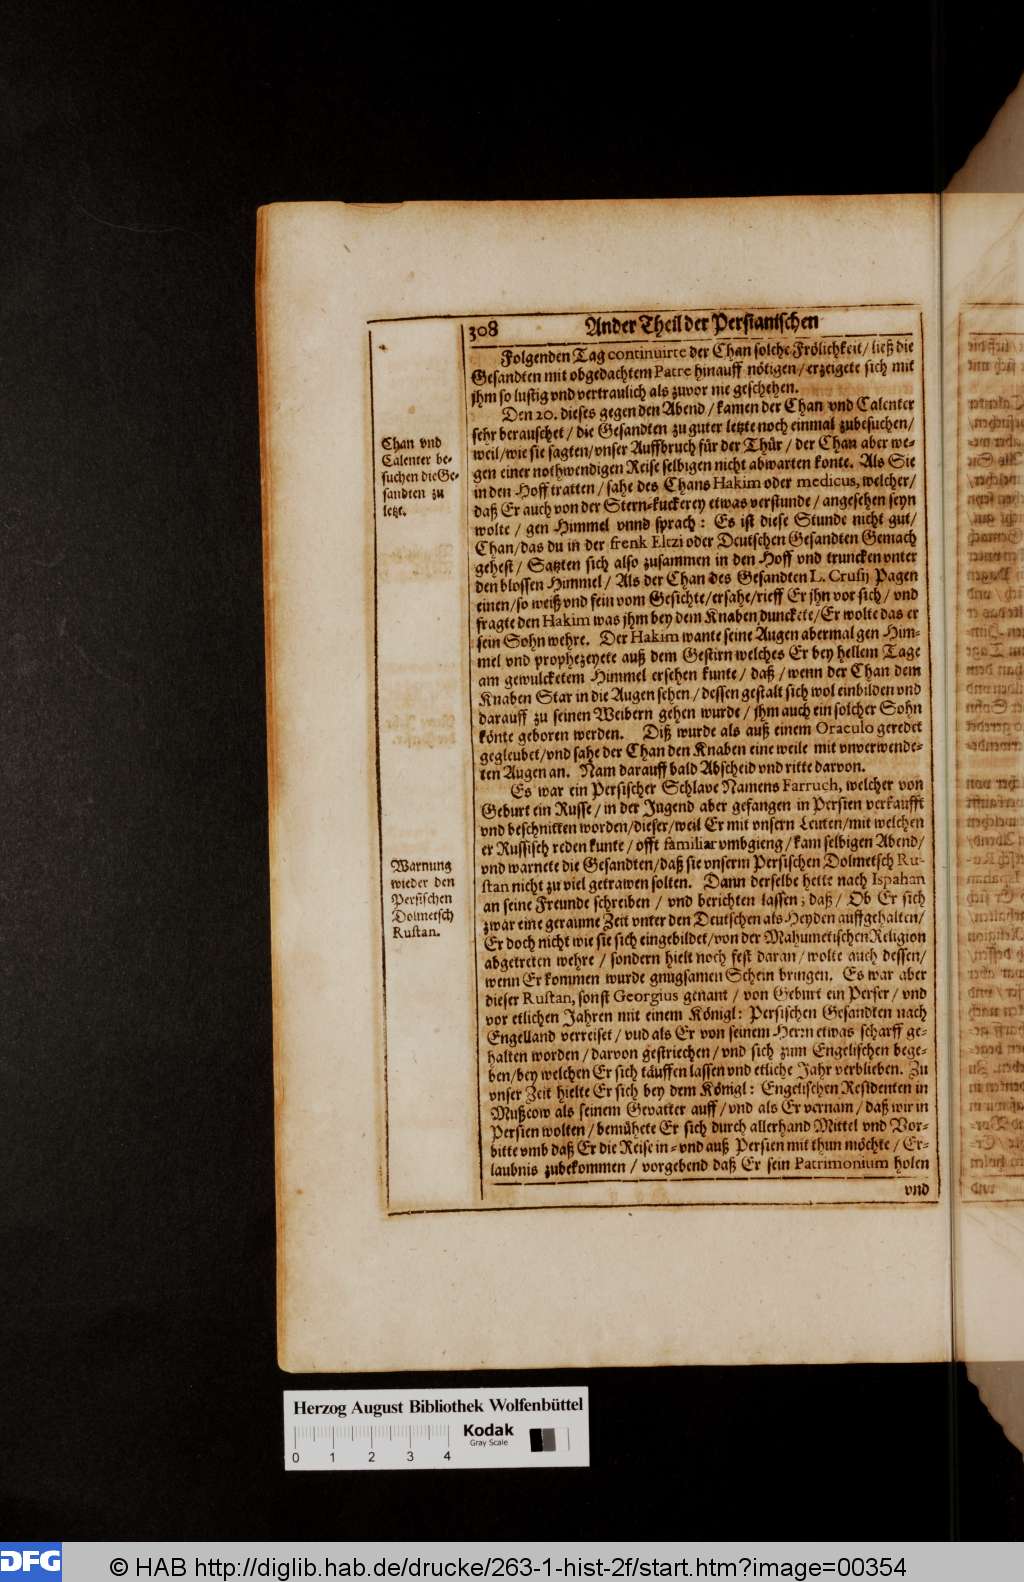 308 Ander Theil der Persianischen
Folgenden Tag continuirte der Chan solche Frölichkeit/ ließ die
Gesandten mit obgedachtem Patre hinauff nötigen/ erzeigete sich mit
jhm so lustig vnd vertraulich als zuvor nie geschehen.
Den 20. dieses gegen den Abend / kamen der Chan vnd Calenter
sehr berauschet / die Gesandten zu guter letzte noch einmal zubesuchen/
weil/wie sie sagten/vnser Auffbruch für der Thür / der Chan aber we-
gen einer nothwendigen Reise selbigen nicht abwarten konte. Als Sie
in den Hoff tratten / sahe des Chans Hakim oder medicus, welcher/
daß Er auch von der Stern-kuckerey etwas verstunde / angesehen seyn
wolte / gen Himmel vnnd sprach : Es ist diese Stunde nicht gut/
Chan/das du in der frenk Eltzi oder Deutschen Gesandten Gemach
gehest / Satzten sich also zusammen in den Hoff vnd truncken vnter
den blossen Himmel / Als der Chan des Gesandten L. Crusij Pagen
einen/so weiß vnd fein vom Gesichte/ersahe/rieff Er jhn vor sich / vnd
fragte den Hakim was jhm bey dem Knaben dunckete/Er wolte das er
sein Sohn wehre. Der Hakim wante seine Augen abermal gen Him-
mel vnd prophezeyete auß dem Gestirn welches Er bey hellem Tage
am gewulcketem Himmel ersehen kunte / daß / wenn der Chan dem
Knaben Star in die Augen sehen / dessen gestalt sich wol einbilden vnd
darauff zu seinen Weibern gehen wurde / jhm auch ein solcher Sohn
könte geboren werden. Diß wurde als auß einem Oraculo geredet
gegleubet/vnd sahe der Chan den Knaben eine weile mit vnverwende-
ten Augen an. Nam darauff bald Abscheid vnd ritte darvon.
Es war ein Persischer Schlave Namens Farruch, welcher von
Geburt ein Russe / in der Jugend aber gefangen in Persien verkaufft
vnd beschnitten worden/dieser/weil Er mit vnsern Leuten/mit welchen
er Russisch reden kunte / offt familiar vmbgieng / kam selbigen Abend/
vnd warnete die Gesandten/daß sie vnserm Persischen Dolmetsch Ru-
stan nicht zu viel getrawen solten. Dann derselbe hette nach Ispahan
an seine Freunde schreiben / vnd berichten lassen; daß / Ob Er sich
zwar eine geraume Zeit vnter den Deutschen als Heyden auffgehalten/
Er doch nicht wie sie sich eingebildet/von der Mahumetischen Religion
abgetreten wehre / sondern hielt noch fest daran / wolte auch dessen/
wenn Er kommen wurde gnugsamen Schein bringen. Es war aber
dieser Rustan, sonst Georgius genant / von Geburt ein Perser / vnd
vor etlichen Jahren mit einem Königl: Persischen Gesandten nach
Engelland verreiset / vnd als Er von seinem Herrn etwas scharff ge-
halten worden / darvon gestriechen / vnd sich zum Engelischen bege-
ben/bey welchen Er sich täuffen lassen vnd etliche Jahr verblieben. Zu
vnser Zeit hielte Er sich bey dem Königl: Engelischen Residenten in
Mußcow als seinem Gevatter auff / vnd als Er vernam / daß wir in
Persien wolten / bemühete Er sich durch allerhand Mittel vnd Vor-
bitte vmb daß Er die Reise in- vnd auß Persien mit thun möchte / Er-
laubnis zubekommen / vorgebend daß Er sein Patrimonium holen
vnd
Chan vnd
Calenter be-
suchen die Ge-
sandten zu
letzt.
Warnung
wieder den
Persischen
Dolmetsch
Rustan.
Herzog August Bibliothek Wolfenbüttel
Kodak
Gray Scale
0 1 2 3 4
DFG © HAB http://diglib.hab.de/drucke/263-1-hist-2f/start.htm?image=00354